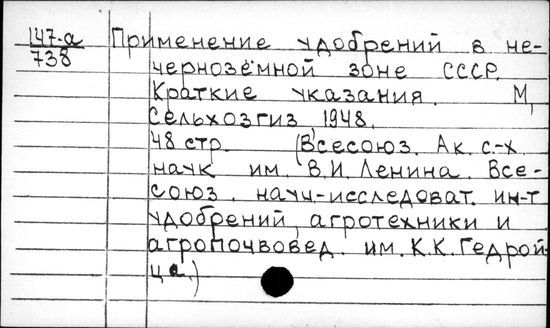 147-а Применение удобрений в не-
738 чернозёмной зоне СССР.
Краткие указания. М,
Сельхозгиз 1948.
48 стр. (Всесоюз. Ак. с.-х.
наук им. В.И. Ленина. Все-
союз. науч-исследоват. ин-т
удобрений, агротехники и
агропочвовед. им. К.К. Гедрой-
ца.)